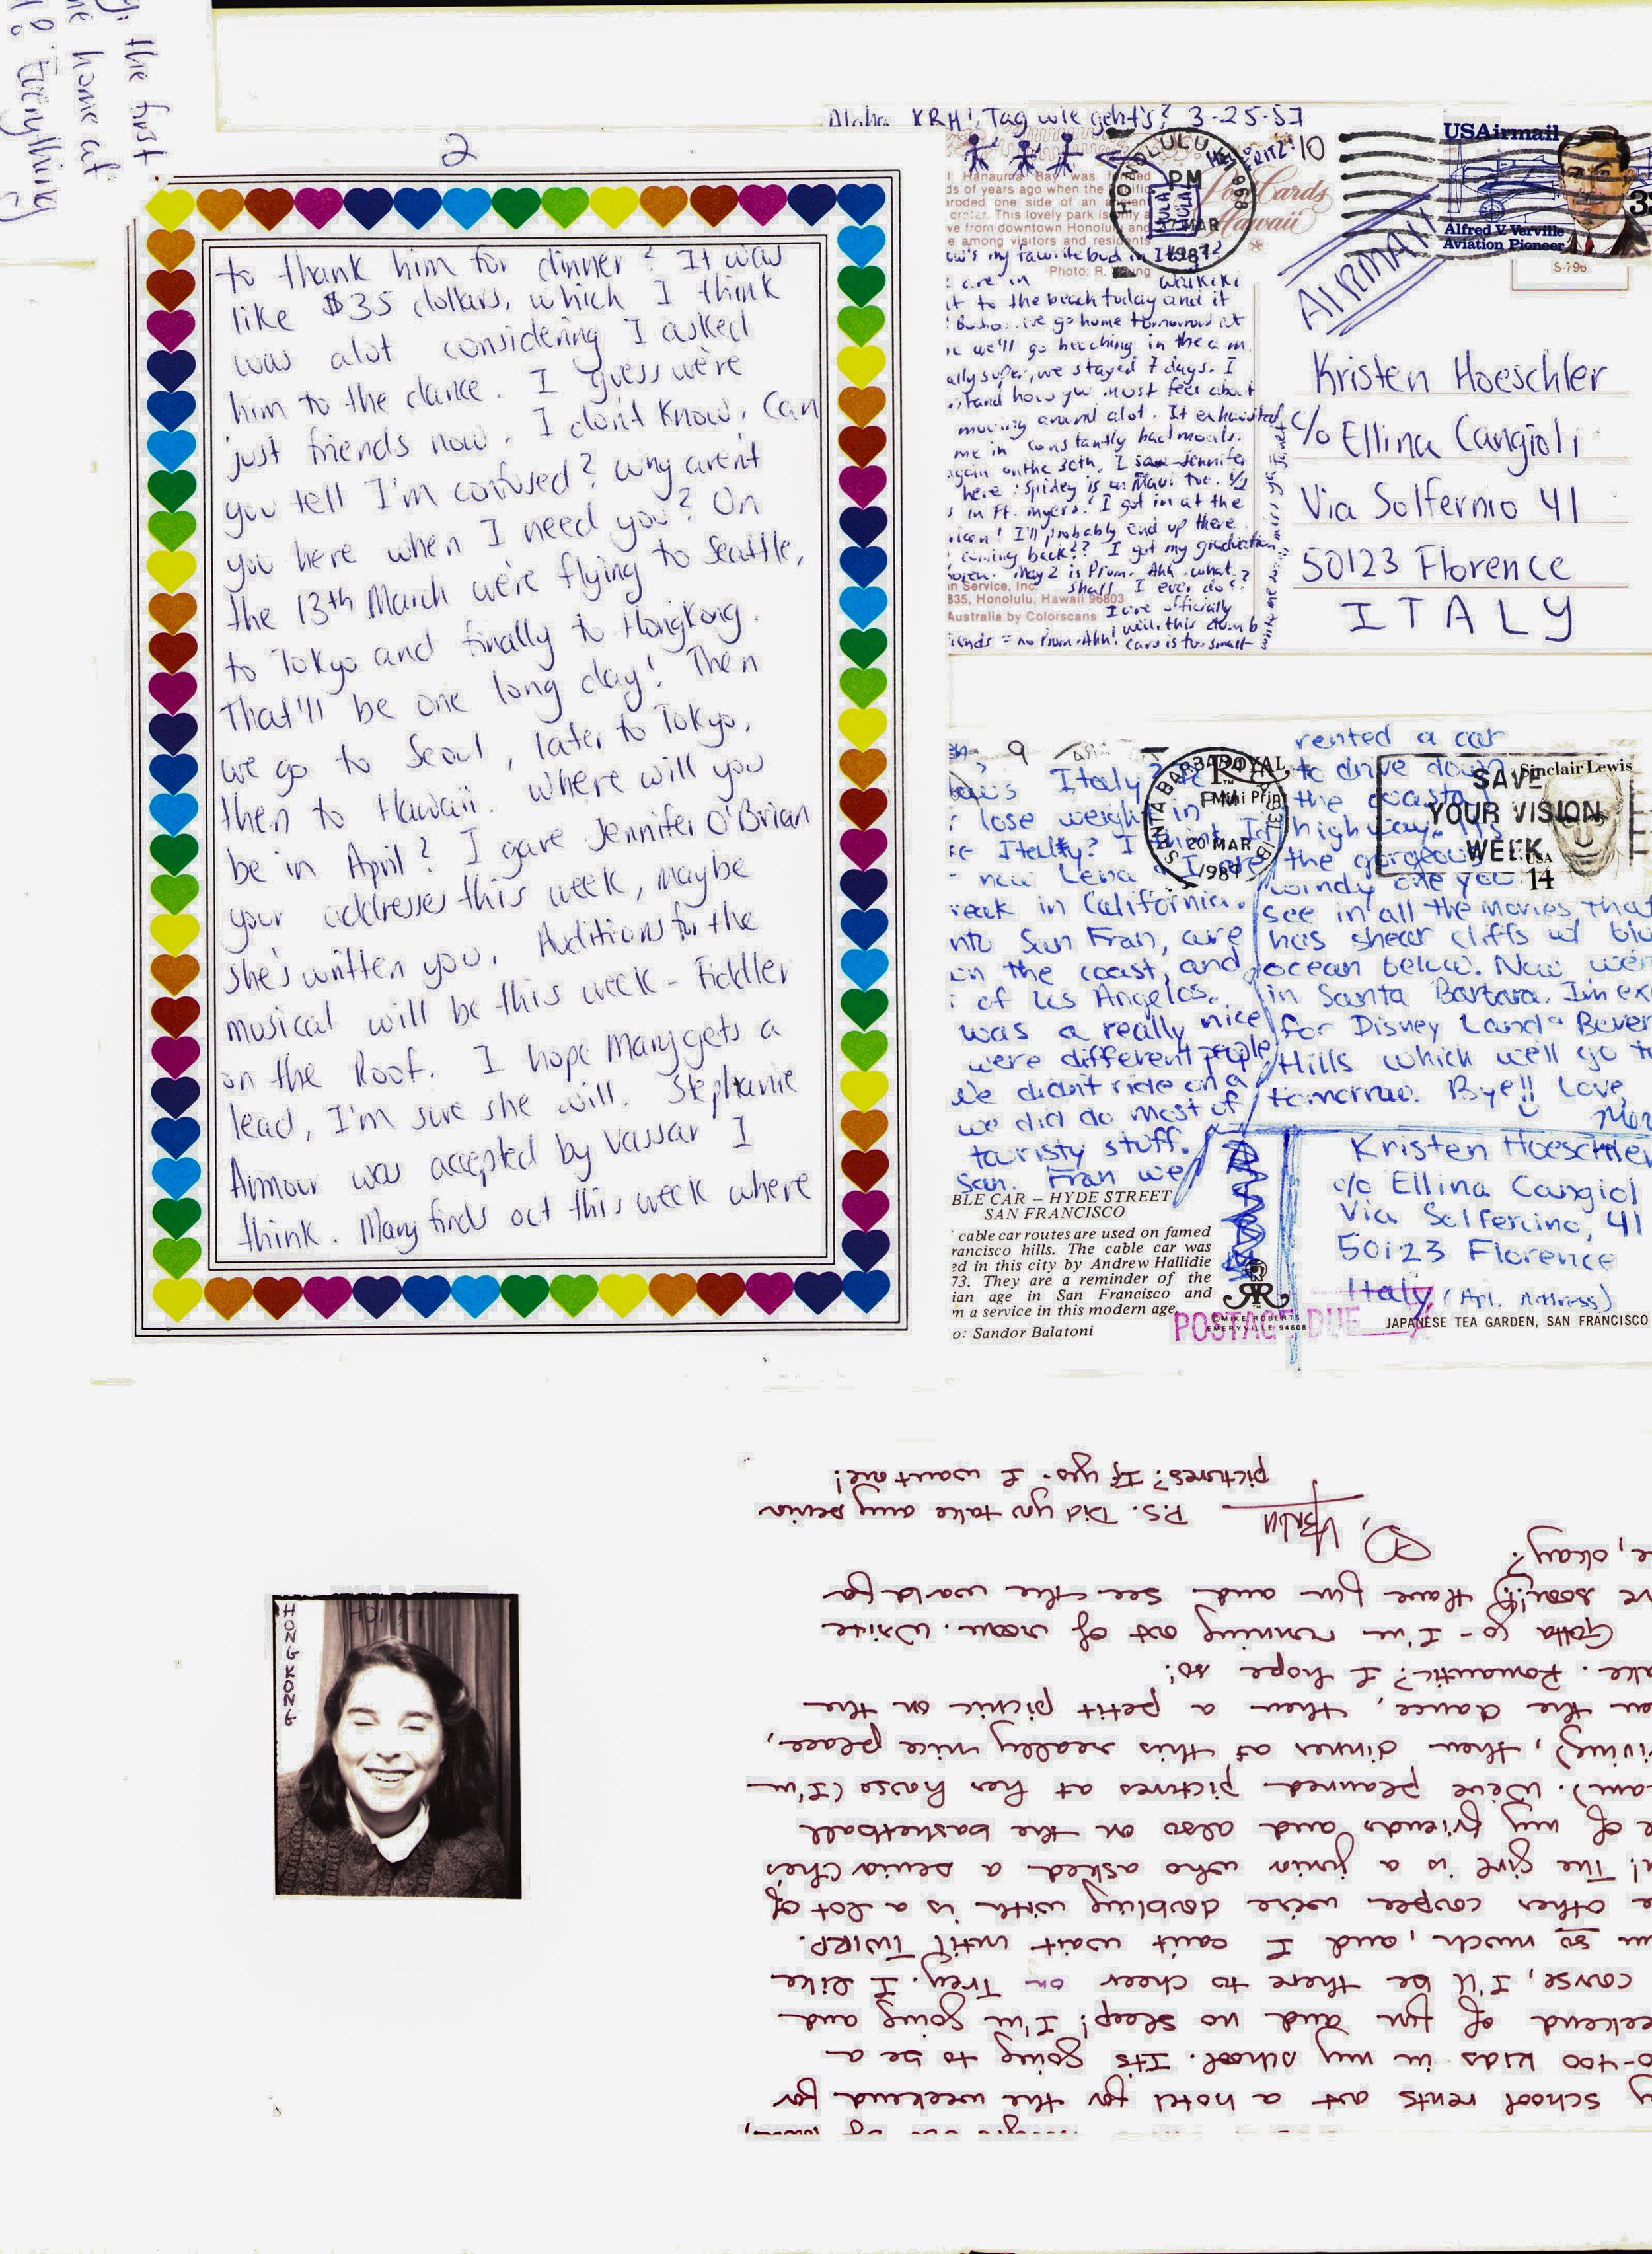 the first
home at
Everything
2
to thank him for dinner? It was
like $35 dollars, which I think
was alot considering I asked
him to the dance. I guess we're
just friends now. I don't know. Can
you tell I'm confused? Why aren't
you here when I need you? On
the 13th March we're flying to Seattle,
to Tokyo and finally to HongKong.
That'll be one long day! Then
we go to Seoul, later to Tokyo,
then to Hawaii. Where will you
be in April? I gave Jennifer O'Brian
your addresses this week, maybe
she's written you. Auditions for the
musical will be this week - Fiddler
on the Roof. I hope Mary gets a
lead, I'm sure she will. Stephanie
Armour was accepted by Vassar I
think. Mary finds out this week where
Aloha KRH! Tag wie geht's? 3-25-87
10
HONOLULU, HI 968
PM
27 MAR
1987
Post Cards
Hawaii
USAirmail
Alfred V. Verville
Aviation Pioneer
AIRMAIL
S-796
Hanauma Bay was
ds of years ago when the
eroded one side of an
crater. This lovely park is only a
ve from downtown Honolulu and
e among visitors and residents
Photo: R.
's my favorite bud in
are in Waikiki
t to the beach today and it
we go home tomorrow at
we'll go beaching in the a.m.
ally super, we stayed 7 days. I
stand how you must feel about
moving around alot. It exhausted
me in constantly had meals.
again on the 30th. I saw Jennifer
here. Spidey is in Maui too. 1/2
in Ft. Myers! I got in at the
I'll probably end up there.
coming back?? I got my graduation
May 2 is Prom. Ahh. what
shall I ever do?
n Service, Inc.
835, Honolulu, Hawaii 96803
Australia by Colorscans
officially
iends = no Prom. Ahh! well, this dumb
card is too small
Kristen Hoeschler
c/o Ellina Cangioli
Via Solfernio 41
50123 Florence
ITALY
9
Italy?
lose weight in
Italy? I think I'd
now Lena & I are
reak in California.
nto San Fran, are
on the coast, and
of Los Angelos.
was a really nice
were different people
We didn't ride on a
we did do most of
touristy stuff.
San. Fran we
rented a car
to drive down
the coastal
highway. It's
the gorgeous
windy one you
see in all the movies, that
has shear cliffs w/ blu
ocean below. Now we'r
in Santa Barbara. I'm exc
for Disney Land & Bever
Hills which we'll go t
tomorrow. Bye!! Love,
SANTA BARBARA
20 MAR
1987
ROYAL
SAVE
YOUR VISION
WEEK
Sinclair Lewis
USA
14
BLE CAR – HYDE STREET
SAN FRANCISCO
cable car routes are used on famed
rancisco hills. The cable car was
ed in this city by Andrew Hallidie
73. They are a reminder of the
ian age in San Francisco and
m a service in this modern age.
o: Sandor Balatoni
MIKE ROBERTS
EMERYVILLE 94608
POSTAGE DUE
Kristen Hoeschler
c/o Ellina Cangiol
Via Solfercino, 41
50123 Florence
Italy (Apt. Address)
JAPANESE TEA GARDEN, SAN FRANCISCO
HONGKONG
school rents out a hotel for the weekend for
0-400 kids in my school. Its going to be a
eekend of fun and no sleep! I'm going and
course, I'll be there to cheer on Trey. I like
m so much, and I can't wait until TWIRP.
e other couple we're doubling with is a lot of
! The girl is a junior who asked a senior (he's
e of my friends and also on the basketball
eam). We've planned pictures at her house (I'm
iving), then dinner at this really nice place,
en the dance, then a petit picnic on the
ake. Romantic? I hope so!
Gotta go - I'm running out of room. Write
me soon!! Have fun and see the world for
e, okay?
P.S. Did you take any senior
pictures? If yes - I want one!